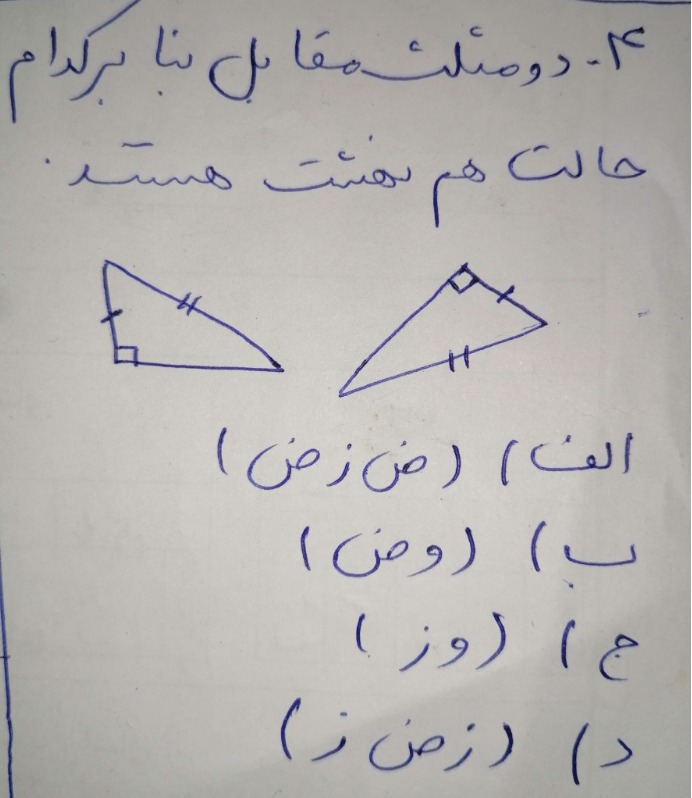 ۴- دو مثلث مقابل بنا بر کدام
حالت هم نهشت هستند.
الف) (ض ز ض)
ب) (وض)
ج) (وز)
د) (ز ض ز)